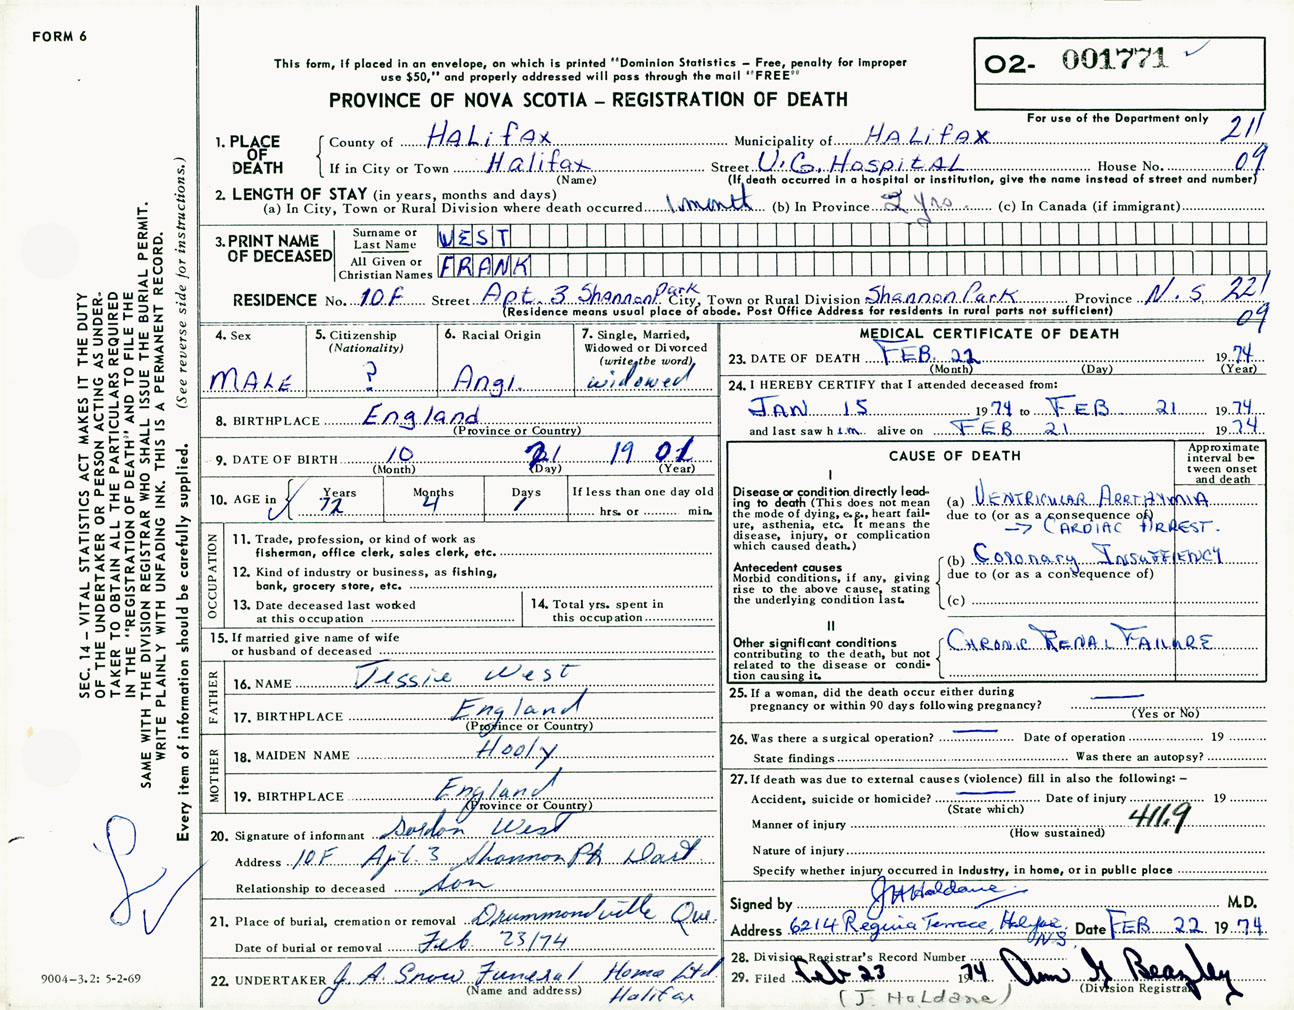 FORM 6
This form, if placed in an envelope, on which is printed "Dominion Statistics – Free, penalty for improper
use $50," and properly addressed will pass through the mail "FREE"
PROVINCE OF NOVA SCOTIA – REGISTRATION OF DEATH
02- 001771
For use of the Department only
211
09
1. PLACE OF DEATH
County of HALifax Municipality of HALifax
If in City or Town Halifax Street V.G. HospitAL House No.
(Name) (If death occurred in a hospital or institution, give the name instead of street and number)
2. LENGTH OF STAY (in years, months and days)
(a) In City, Town or Rural Division where death occurred 1 month (b) In Province 2 yrs (c) In Canada (if immigrant)
3. PRINT NAME OF DECEASED
Surname or Last Name WEST
All Given or Christian Names FRANK
RESIDENCE No. 10F Street Apt. 3 Shannon Park City, Town or Rural Division Shannon Park Province N.S 221
09
(Residence means usual place of abode. Post Office Address for residents in rural parts not sufficient)
4. Sex
MALE
5. Citizenship
(Nationality)
?
6. Racial Origin
Angl.
7. Single, Married,
Widowed or Divorced
(write the word)
widowed
8. BIRTHPLACE England
(Province or Country)
9. DATE OF BIRTH 10 21 1901
(Month) (Day) (Year)
10. AGE in
Years Months Days If less than one day old
72 4 1 hrs. or min.
OCCUPATION
11. Trade, profession, or kind of work as
fisherman, office clerk, sales clerk, etc.
12. Kind of industry or business, as fishing,
bank, grocery store, etc.
13. Date deceased last worked
at this occupation
14. Total yrs. spent in
this occupation
15. If married give name of wife
or husband of deceased
FATHER
16. NAME Jessie West
17. BIRTHPLACE England
(Province or Country)
MOTHER
18. MAIDEN NAME Hooly
19. BIRTHPLACE England
(Province or Country)
20. Signature of informant Gordon West
Address 10F Apt. 3 Shannon Pk Dart
Relationship to deceased son
21. Place of burial, cremation or removal Drummondville Que.
Date of burial or removal Feb. 23/74
22. UNDERTAKER J. A. Snow Funeral Home Ltd
(Name and address) Halifax
MEDICAL CERTIFICATE OF DEATH
23. DATE OF DEATH FEB. 22 1974
(Month) (Day) (Year)
24. I HEREBY CERTIFY that I attended deceased from:
JAN 15 1974 to FEB 21 1974
and last saw him alive on FEB 21 1974
CAUSE OF DEATH
Approximate
interval be-
tween onset
and death
I
Disease or condition directly lead-
ing to death (This does not mean
the mode of dying, e.g., heart fail-
ure, asthenia, etc. It means the
disease, injury, or complication
which caused death.)
(a) VENTRICULAR ARRTHYMIA
due to (or as a consequence of)
→ CARDIAC ARREST.
Antecedent causes
Morbid conditions, if any, giving
rise to the above cause, stating
the underlying condition last.
(b) Coronary INSUFFICIENCY
due to (or as a consequence of)
(c)
II
Other significant conditions
contributing to the death, but not
related to the disease or condi-
tion causing it.
CHRONIC RENAL FAILURE
25. If a woman, did the death occur either during
pregnancy or within 90 days following pregnancy?
(Yes or No)
26. Was there a surgical operation? Date of operation 19
State findings Was there an autopsy?
27. If death was due to external causes (violence) fill in also the following: –
Accident, suicide or homicide? Date of injury 19
(State which)
Manner of injury 411.9
(How sustained)
Nature of injury
Specify whether injury occurred in industry, in home, or in public place
Signed by J H Haldane M.D.
Address 6214 Regina Terrace, Halifax, N.S. Date FEB 22 1974
28. Division Registrar's Record Number
29. Filed Feb 23 1974 Ann G Beazley
(Division Registrar)
(J. HALDANE)
SEC. 14 – VITAL STATISTICS ACT MAKES IT THE DUTY
OF THE UNDERTAKER OR PERSON ACTING AS UNDER-
TAKER TO OBTAIN ALL THE PARTICULARS REQUIRED
IN THE "REGISTRATION OF DEATH" AND TO FILE THE
SAME WITH THE DIVISION REGISTRAR WHO SHALL ISSUE THE BURIAL PERMIT.
WRITE PLAINLY WITH UNFADING INK. THIS IS A PERMANENT RECORD.
Every item of information should be carefully supplied. (See reverse side for instructions.)
9004-3.2: 5-2-69